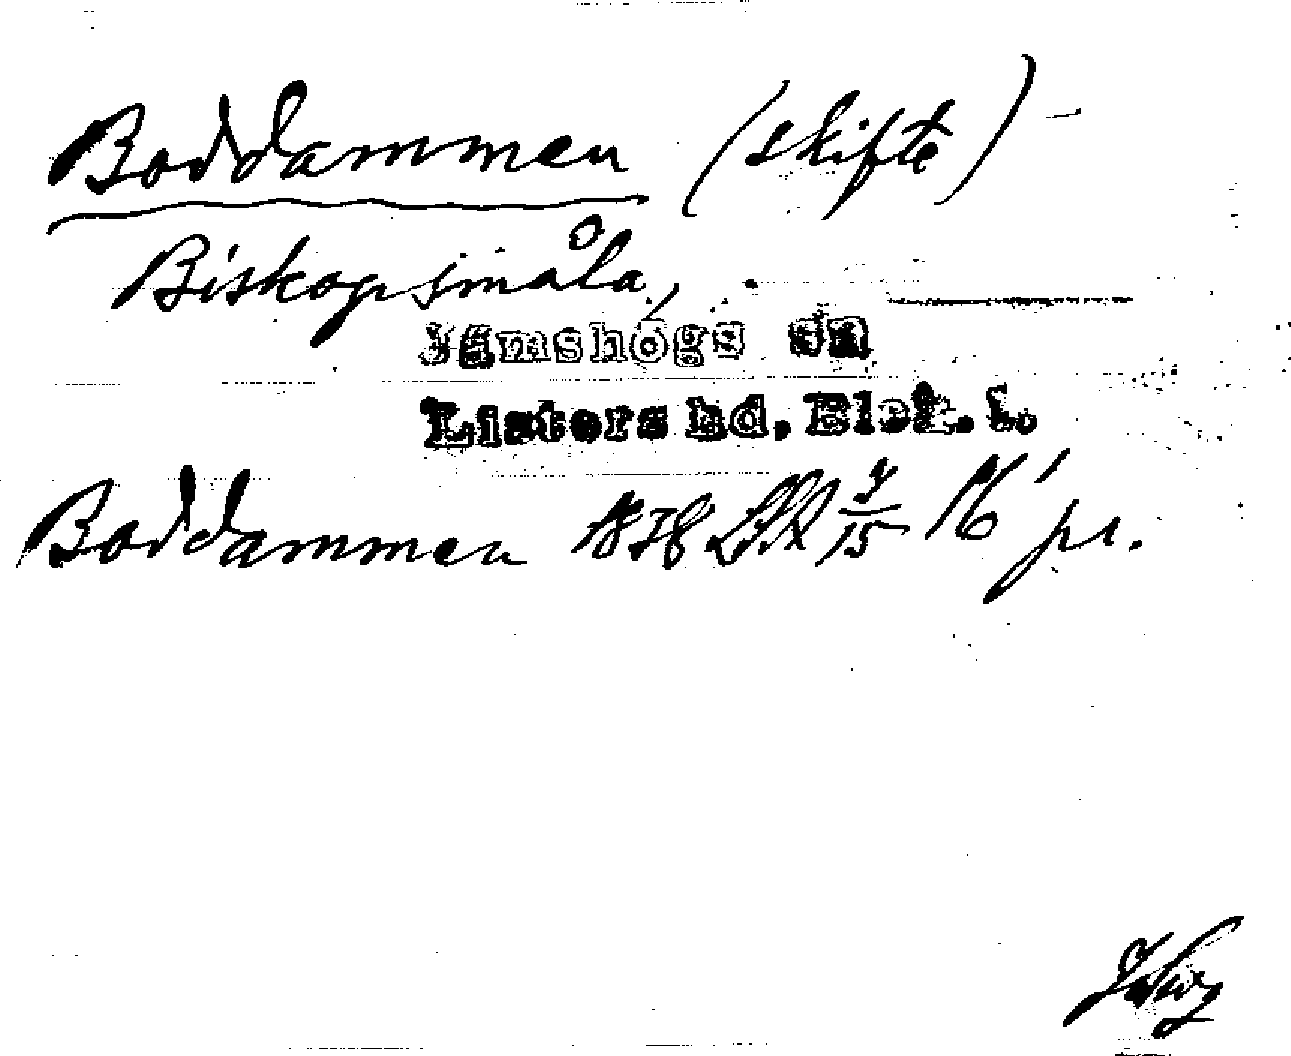 Boddammen (skifte) –
Biskopsmåla,
Jämshögs sn
Listers hd, Blek. l.
Boddammen 1838 16' pr.